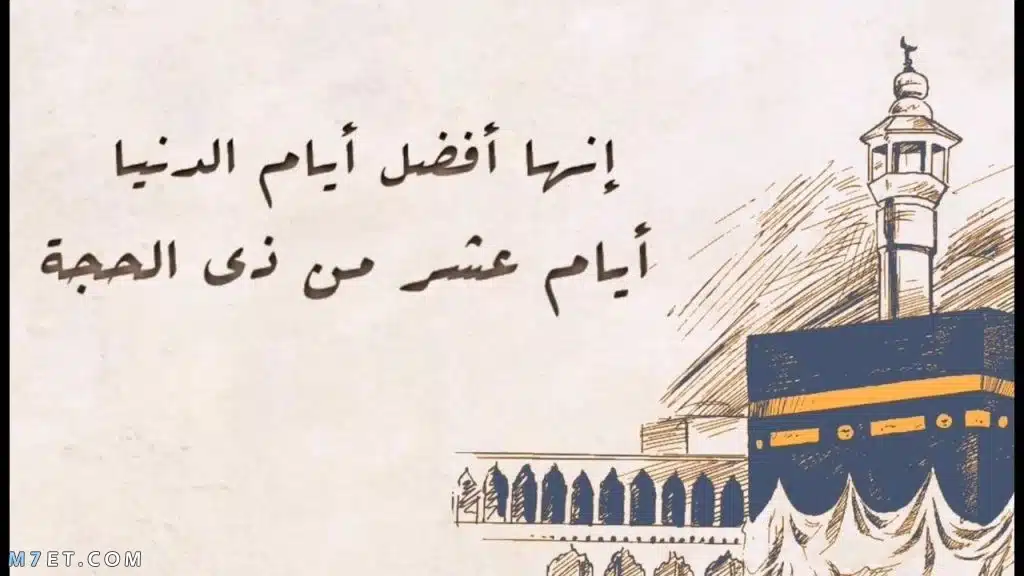 إنها أفضل أيام الدنيا
أيام عشر من ذى الحجة
M7ET.COM